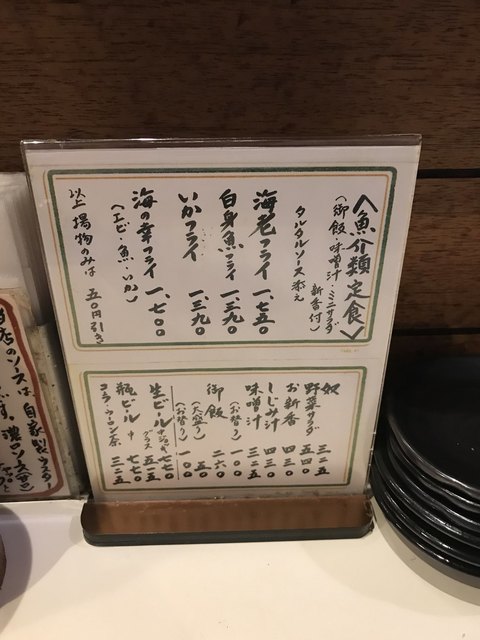 〈魚介類定食〉
(御飯・味噌汁・ミニサラダ
新香付)
タルタルソース添え
海老フライ 一、七五〇
白身魚フライ 一、三九〇
いかフライ 一、三九〇
海の幸フライ 一、七〇〇
(エビ・魚・いか)
以上 揚物のみは 五〇円引き
奴 三二五
野菜サラダ 三二五
お新香 四三〇
しじみ汁 四三〇
味噌汁
(お替り) 一〇〇
御飯 二六〇
(大盛り) 五〇
(お替り) 一〇〇
生ビール 中ジョッキ 七七〇
グラス 五二五
瓶ビール 中 七七〇
コーラ・ウーロン茶 三二五
当店のソースは、自家製ウスター
です。濃ソース